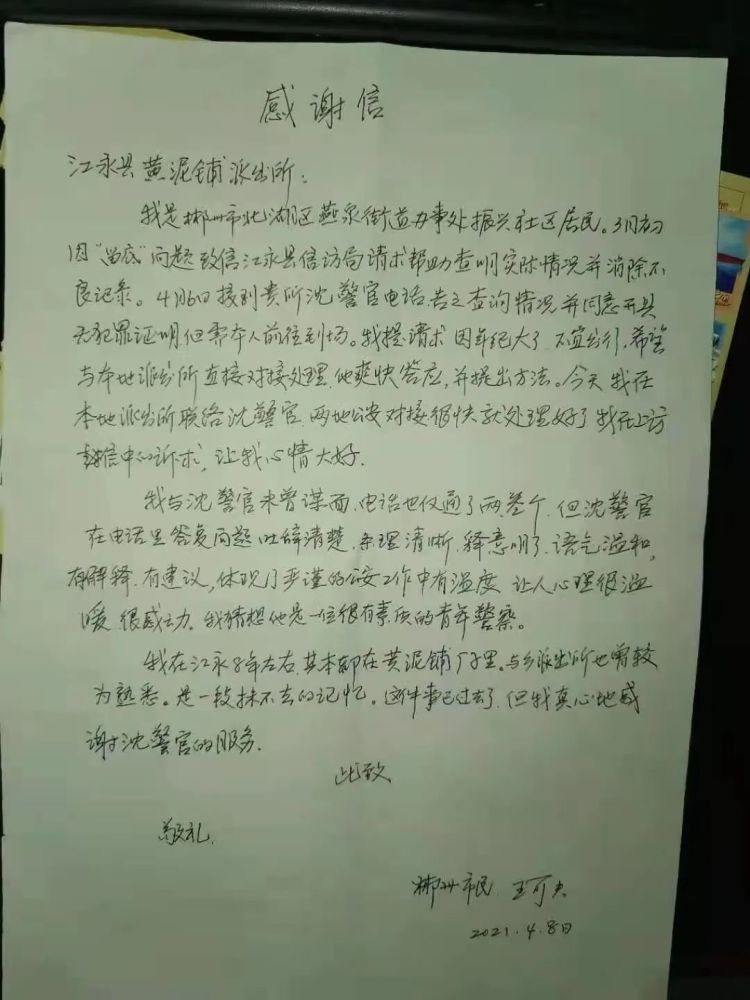 感谢信
江永县黄泥铺派出所：
我是郴州市北湖区燕泉街道办事处振兴社区居民。3月初
因“留底”问题致信江永县信访局请求帮助查明实际情况并消除不
良记录。4月6日接到贵所沈警官电话，告之查询情况并同意开具
无犯罪证明，但需本人前往到场。我提请求，因年纪大了，不宜出行，希望
与本地派出所直接对接处理，他爽快答应，并提出方法。今天我在
本地派出所联络沈警官，两地公安对接很快就处理好了我在上访
信中的诉求，让我心情大好。
我与沈警官未曾谋面，电话也仅通了两、叁个，但沈警官
在电话里答复问题吐辞清楚，条理清晰，释意明了，语气温和，
有解释，有建议，体现了严谨的公安工作中有温度，让人心理很温
暖，很感动。我猜想他是一位很有素质的青年警察。
我在江永8年左右，基本都在黄泥铺厂子里。与乡派出所也曾较
为熟悉。是一段抹不去的记忆。这件事已过去了，但我真心地感
谢沈警官的服务。
此致
敬礼
郴州市民 王可夫
2021.4.8日